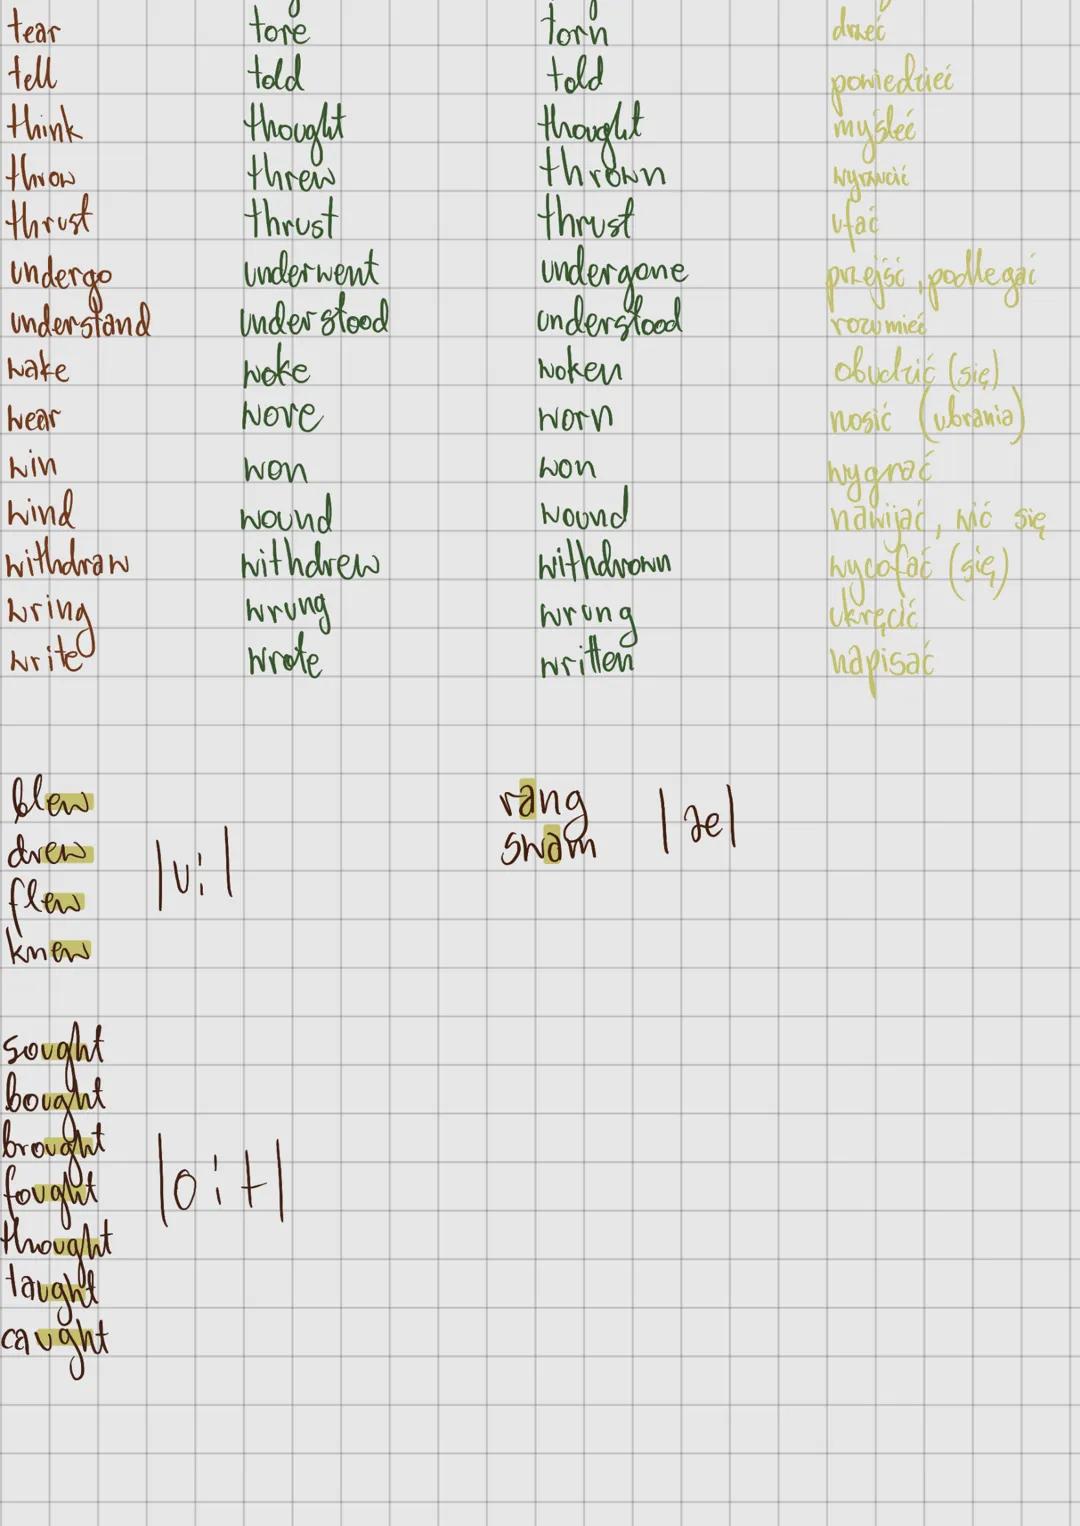 tear tore torn drzeć
tell told told powiedzieć
think thought thought myśleć
throw threw thrown wyrzucić
thrust thrust thrust ufać
undergo underwent undergone przejść, podlegać
understand understood understood rozumieć
wake woke woken obudzić (się)
wear wore worn nosić (ubrania)
win won won wygrać
wind wound wound nawijać, wić się
withdraw withdrew withdrown wycofać (się)
wring wrung wrung ukręcić
write wrote written napisać
blew rang |æ|
drew |u:| swam
flew
knew
sought
bought
brought
fought |o:t|
thought
taught
caught